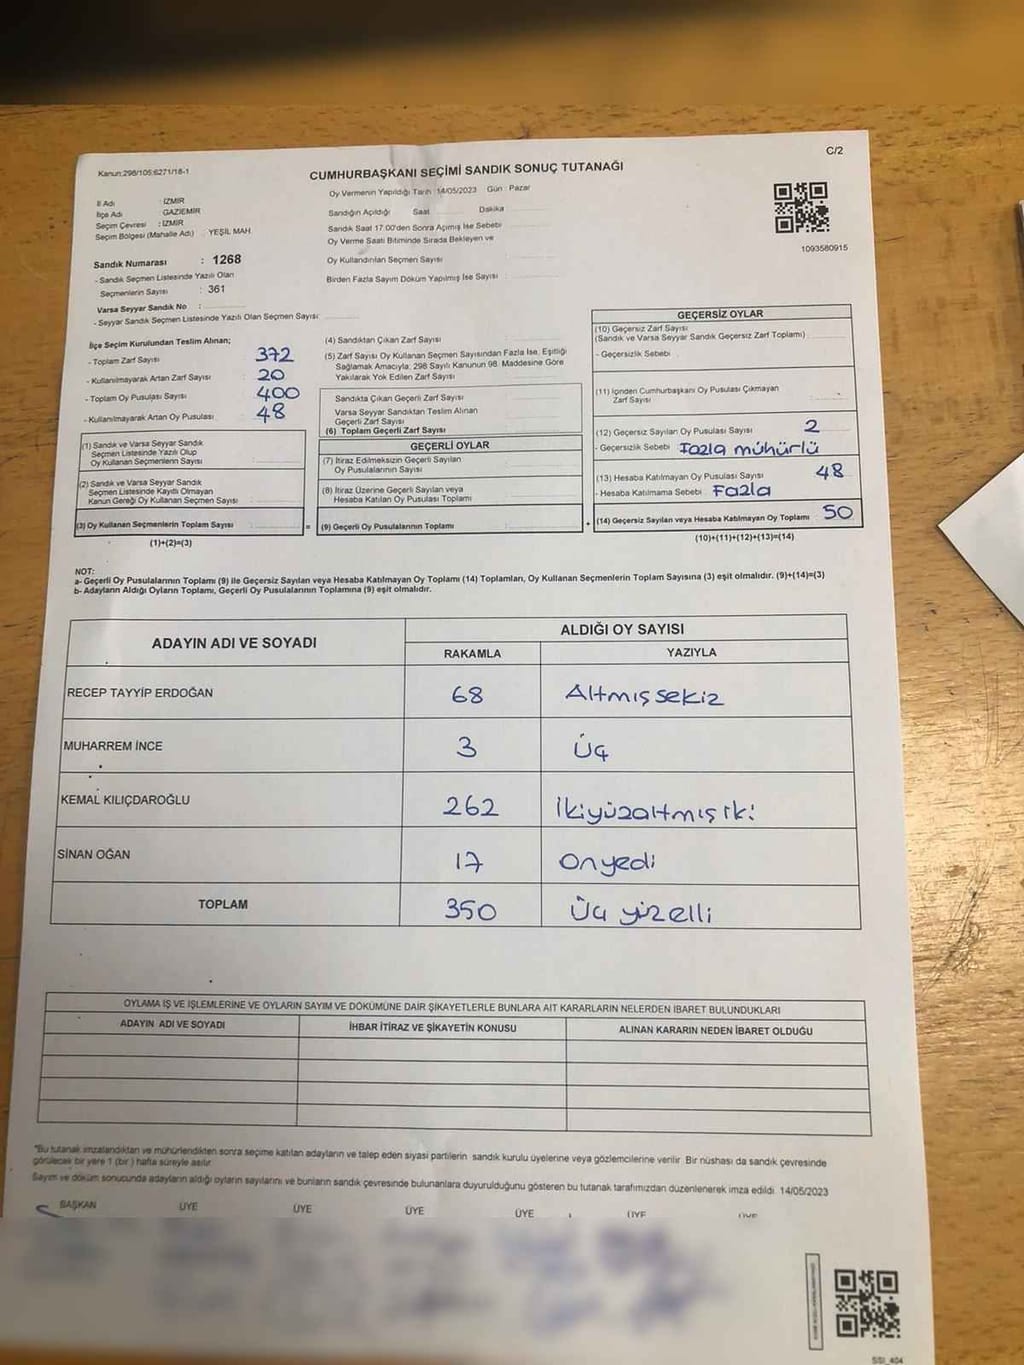 C/2
Kanun:298/105:6271/18-1
CUMHURBAŞKANI SEÇİMİ SANDIK SONUÇ TUTANAĞI
Oy Vermenin Yapıldığı Tarih :14/05/2023 Gün : Pazar
İl Adı : İZMİR
İlçe Adı GAZİEMİR
Seçim Çevresi : İZMİR
Seçim Bölgesi (Mahalle Adı) : YEŞİL MAH
Sandığın Açıldığı Saat Dakika
Sandık Saat 17.00'den Sonra Açımış İse Sebebi
Oy Verme Saati Bitiminde Sırada Bekleyen ve
Oy Kullandırılan Seçmen Sayısı
Birden Fazla Sayım Döküm Yapılmış İse Sayısı
1093580915
Sandık Numarası : 1268
- Sandık Seçmen Listesinde Yazılı Olan
Seçmenlerin Sayısı : 361
Varsa Seyyar Sandık No :
- Seyyar Sandık Seçmen Listesinde Yazılı Olan Seçmen Sayısı:
İlçe Seçim Kurulundan Teslim Alınan;
- Toplam Zarf Sayısı 372
- Kullanılmayarak Artan Zarf Sayısı : 20
- Toplam Oy Pusulası Sayısı 400
- Kullanılmayarak Artan Oy Pusulası : 48
(1) Sandık ve Varsa Seyyar Sandık
Seçmen Listesinde Yazılı Olup
Oy Kullanan Seçmenlerin Sayısı :
(2) Sandık ve Varsa Seyyar Sandık
Seçmen Listesinde Kayıtlı Olmayan
Kanun Gereği Oy Kullanan Seçmen Sayısı :
(3) Oy Kullanan Seçmenlerin Toplam Sayısı :
(1)+(2)=(3)
(4) Sandıktan Çıkan Zarf Sayısı
(5) Zarf Sayısı Oy Kullanan Seçmen Sayısından Fazla İse, Eşitliği
Sağlamak Amacıyla; 298 Sayılı Kanunun 98. Maddesine Göre
Yakılarak Yok Edilen Zarf Sayısı
Sandıkta Çıkan Geçerli Zarf Sayısı
Varsa Seyyar Sandıktan Teslim Alınan
Geçerli Zarf Sayısı
(6) Toplam Geçerli Zarf Sayısı
GEÇERLİ OYLAR
(7) İtiraz Edilmeksizin Geçerli Sayılan
Oy Pusulalarının Sayısı
(8) İtiraz Üzerine Geçerli Sayılan veya
Hesaba Katılan Oy Pusulası Toplamı
= (9) Geçerli Oy Pusulalarının Toplamı
GEÇERSİZ OYLAR
(10) Geçersiz Zarf Sayısı
(Sandık ve Varsa Seyyar Sandık Geçersiz Zarf Toplamı)
- Geçersizlik Sebebi
(11) İçinden Cumhurbaşkanı Oy Pusulası Çıkmayan
Zarf Sayısı
(12) Geçersiz Sayılan Oy Pusulası Sayısı 2
- Geçersizlik Sebebi Fazla mühürlü
(13) Hesaba Katılmayan Oy Pusulası Sayısı 48
- Hesaba Katılmama Sebebi Fazla
+ (14) Geçersiz Sayılan veya Hesaba Katılmayan Oy Toplamı 50
(10)+(11)+(12)+(13)=(14)
NOT:
a- Geçerli Oy Pusulalarının Toplamı (9) ile Geçersiz Sayılan veya Hesaba Katılmayan Oy Toplamı (14) Toplamları, Oy Kullanan Seçmenlerin Toplam Sayısına (3) eşit olmalıdır. (9)+(14)=(3)
b- Adayların Aldığı Oyların Toplamı, Geçerli Oy Pusulalarının Toplamına (9) eşit olmalıdır.
ADAYIN ADI VE SOYADI ALDIĞI OY SAYISI
RAKAMLA YAZIYLA
RECEP TAYYİP ERDOĞAN 68 Altmışsekiz
MUHARREM İNCE 3 Üç
KEMAL KILIÇDAROĞLU 262 İkiyüzaltmışiki
SİNAN OĞAN 17 Onyedi
TOPLAM 350 Üç yüzelli
OYLAMA İŞ VE İŞLEMLERİNE VE OYLARIN SAYIM VE DÖKÜMÜNE DAİR ŞİKAYETLERLE BUNLARA AİT KARARLARIN NELERDEN İBARET BULUNDUKLARI
ADAYIN ADI VE SOYADI İHBAR İTİRAZ VE ŞİKAYETİN KONUSU ALINAN KARARIN NEDEN İBARET OLDUĞU
*Bu tutanak imzalandıktan ve mühürlendikten sonra seçime katılan adayların ve talep eden siyasi partilerin sandık kurulu üyelerine veya gözlemcilerine verilir. Bir nüshası da sandık çevresinde
görülecek bir yere 1 (bir) hafta süreyle asılır.
Sayım ve döküm sonucunda adayların aldığı oyların sayılarını ve bunların sandık çevresinde bulunanlara duyurulduğunu gösteren bu tutanak tarafımızdan düzenlenerek imza edildi. 14/05/2023
BAŞKAN ÜYE ÜYE ÜYE ÜYE ÜYE ÜYE
SSI_404